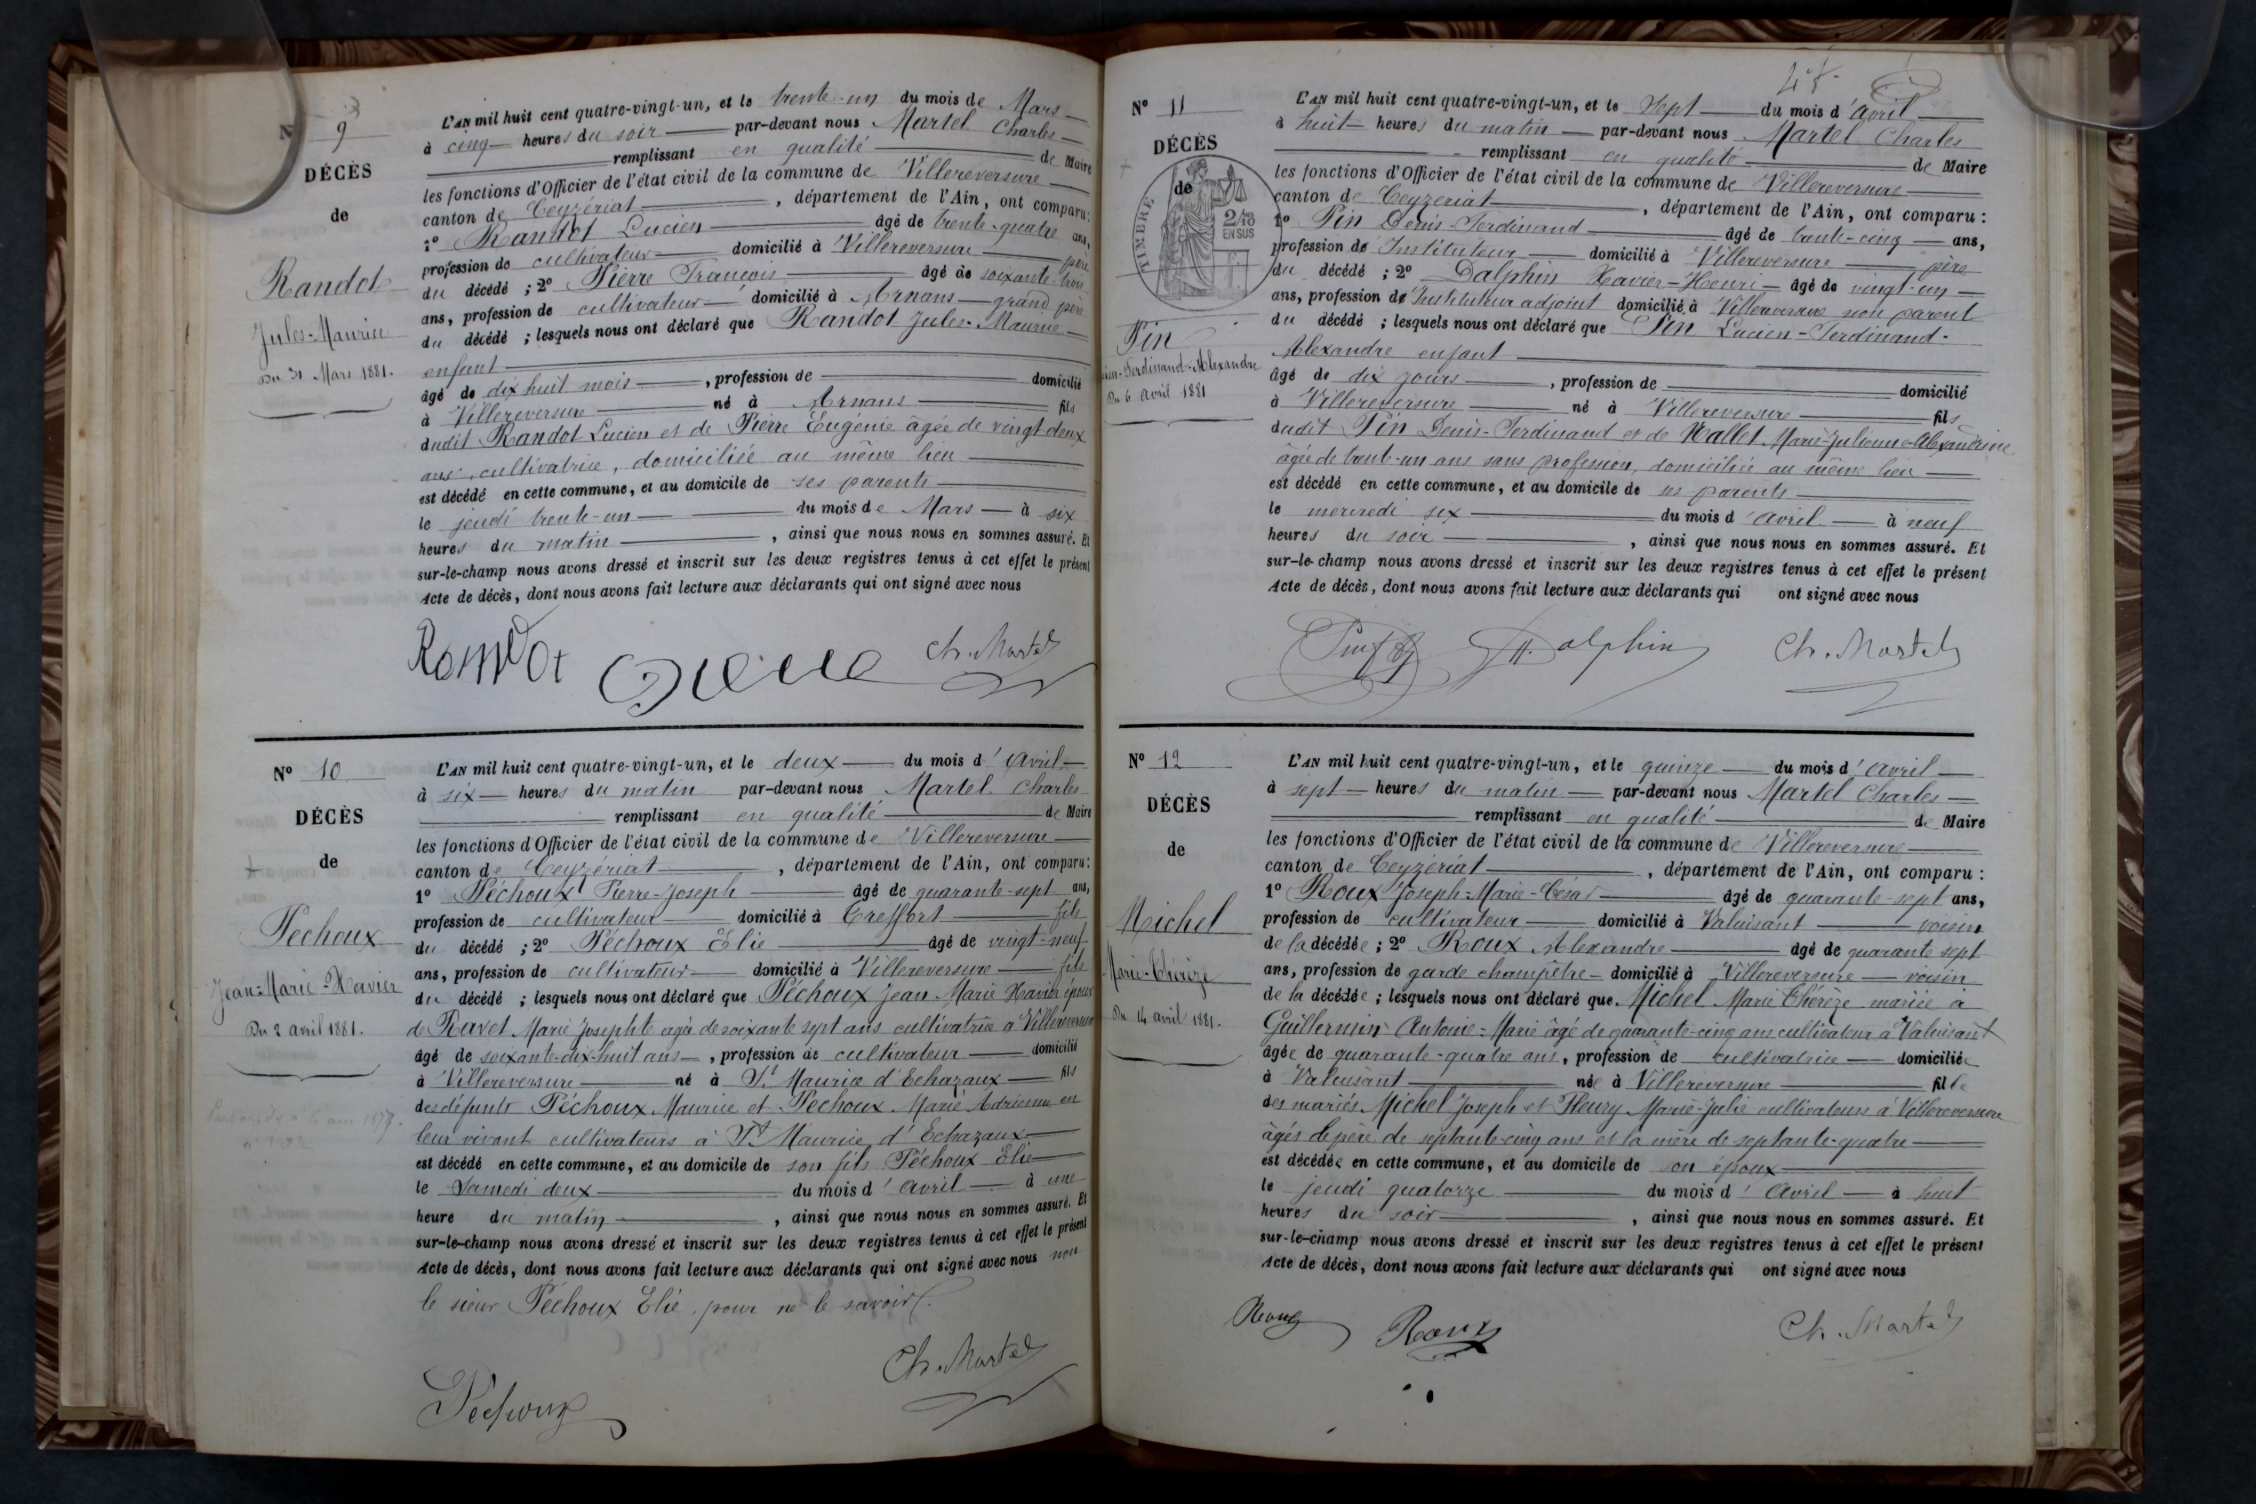 N° 9
DÉCÈS
de
Randot
Jules-Maurice
Du 31 Mars 1881.
L'AN mil huit cent quatre-vingt-un, et le trente-un du mois de Mars
à cinq heures du soir par-devant nous Martel Charles
remplissant en qualité de Maire
les fonctions d'Officier de l'état civil de la commune de Villereversure
canton de Ceyzériat, département de l'Ain, ont comparu:
1° Randot Lucien âgé de trente-quatre ans,
profession de cultivateur domicilié à Villereversure père
du décédé ; 2° Pierre François âgé de soixante-trois
ans, profession de cultivateur domicilié à Arnans grand père
du décédé ; lesquels nous ont déclaré que Randot Jules-Maurice
enfant
âgé de dix huit mois, profession de domicilié
à Villereversure né à Arnans fils
dudit Randot Lucien et de Pierre Eugénie âgée de vingt deux
ans, cultivatrice, domiciliée au même lieu
est décédé en cette commune, et au domicile de ses parents
le jeudi trente-un du mois de Mars à six
heures du matin, ainsi que nous nous en sommes assuré. Et
sur-le-champ nous avons dressé et inscrit sur les deux registres tenus à cet effet le présent
Acte de décès, dont nous avons fait lecture aux déclarants qui ont signé avec nous
Randot Ch. Martel
N° 10
DÉCÈS
de
Péchoux
Jean-Marie-Xavier
Du 2 avril 1881.
L'AN mil huit cent quatre-vingt-un, et le deux du mois d'avril
à six heures du matin par-devant nous Martel Charles
remplissant en qualité de Maire
les fonctions d'Officier de l'état civil de la commune de Villereversure
canton de Ceyzériat, département de l'Ain, ont comparu:
1° Péchoux Pierre-Joseph âgé de quarante-sept ans,
profession de cultivateur domicilié à Treffort fils
du décédé ; 2° Péchoux Elie âgé de vingt-neuf
ans, profession de cultivateur domicilié à Villereversure fils
du décédé ; lesquels nous ont déclaré que Péchoux Jean Marie Xavier époux
d Ravet Marie Josephte agée de soixante sept ans cultivatrice à Villereversure
âgé de soixante-dix-huit ans, profession de cultivateur domicilié
à Villereversure né à St Maurice d'Echazaux fils
des défunts Péchoux Maurice et Péchoux Marie Adrienne en
leur vivant cultivateurs à St Maurice d'Echazaux
est décédé en cette commune, et au domicile de son fils Péchoux Elie
le Samedi deux du mois d'avril à une
heure du matin, ainsi que nous nous en sommes assuré. Et
sur-le-champ nous avons dressé et inscrit sur les deux registres tenus à cet effet le présent
Acte de décès, dont nous avons fait lecture aux déclarants qui ont signé avec nous non
le sieur Péchoux Elie, pour ne le savoir.
Péchoux Ch. Martel
N° 11
DÉCÈS
de
TIMBRE
2/10
EN SUS
Pin
Ferdinand-Alexandre
Du 6 avril 1881
L'AN mil huit cent quatre-vingt-un, et le sept du mois d'avril
à huit heures du matin par-devant nous Martel Charles
remplissant en qualité de Maire
les fonctions d'Officier de l'état civil de la commune de Villereversure
canton de Ceyzériat, département de l'Ain, ont comparu :
1° Pin Denis-Ferdinand âgé de trente-cinq ans,
profession de Instituteur domicilié à Villereversure père
du décédé ; 2° Dalphin Xavier-Henri âgé de vingt-un
ans, profession de Instituteur adjoint domicilié à Villereversure non parent
du décédé ; lesquels nous ont déclaré que Pin Lucien-Ferdinand-
Alexandre enfant
âgé de dix jours, profession de domicilié
à Villereversure né à Villereversure fils
dudit Pin Denis-Ferdinand et de Mallet Marie-Julienne-Alexandrine
âgée de trente-un ans sans profession, domiciliée au même lieu
est décédé en cette commune, et au domicile de ses parents
le mercredi six du mois d'avril à neuf
heures du soir, ainsi que nous nous en sommes assuré. Et
sur-le-champ nous avons dressé et inscrit sur les deux registres tenus à cet effet le présent
Acte de décès, dont nous avons fait lecture aux déclarants qui ont signé avec nous
Pin H. Dalphin Ch. Martel
N° 12
DÉCÈS
de
Michel
Marie-Thérèze
Du 14 avril 1881.
L'AN mil huit cent quatre-vingt-un, et le quinze du mois d'avril
à sept heures du matin par-devant nous Martel Charles
remplissant en qualité de Maire
les fonctions d'Officier de l'état civil de la commune de Villereversure
canton de Ceyzériat, département de l'Ain, ont comparu :
1° Roux Joseph-Marie-César âgé de quarante-sept ans,
profession de cultivateur domicilié à Valuisant voisin
de la décédée ; 2° Roux Alexandre âgé de quarante sept
ans, profession de garde champêtre domicilié à Villereversure voisin
de la décédée ; lesquels nous ont déclaré que Michel Marie Thérèze mariée à
Guillermin Antoine-Marie âgé de quarante-cinq ans cultivateur à Valuisant
âgée de quarante-quatre ans, profession de cultivatrice domiciliée
à Valuisant née à Villereversure fille
des mariés Michel Joseph et Fleury Marie-Julie cultivateurs à Villereversure
âgés le père de septante-cinq ans et la mère de septante-quatre
est décédée en cette commune, et au domicile de son époux
le jeudi quatorze du mois d'avril à huit
heures du soir, ainsi que nous nous en sommes assuré. Et
sur-le-champ nous avons dressé et inscrit sur les deux registres tenus à cet effet le présent
Acte de décès, dont nous avons fait lecture aux déclarants qui ont signé avec nous
Roux Roux Ch. Martel